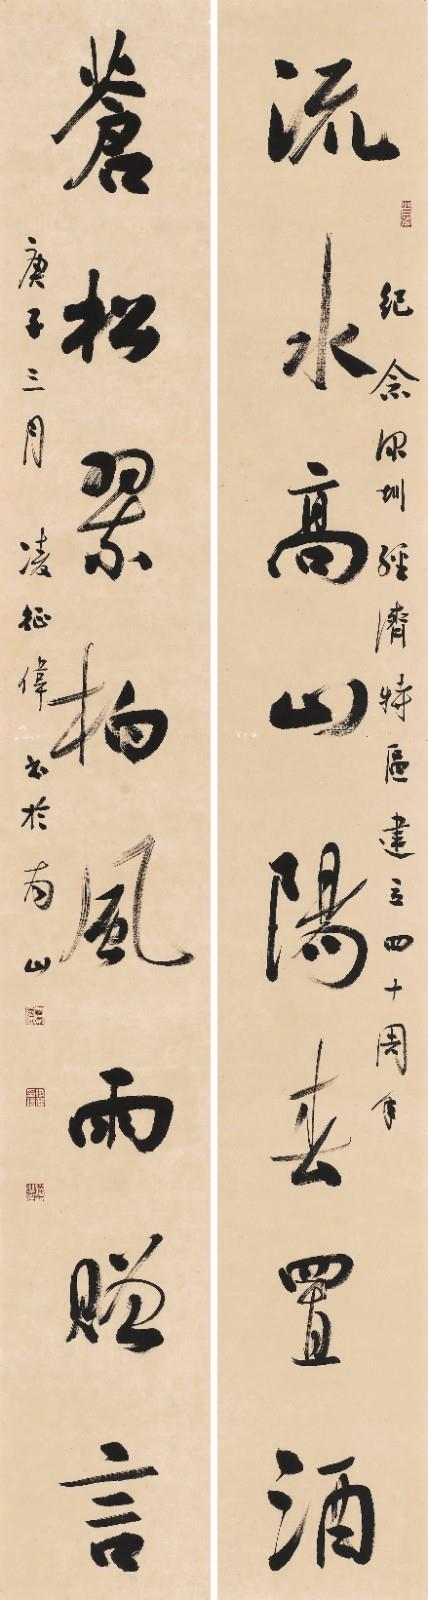 流水高山陽春置酒
紀念深圳經濟特區建立四十周年
蒼松翠柏風雨贈言
庚子三月凌征偉書於南山